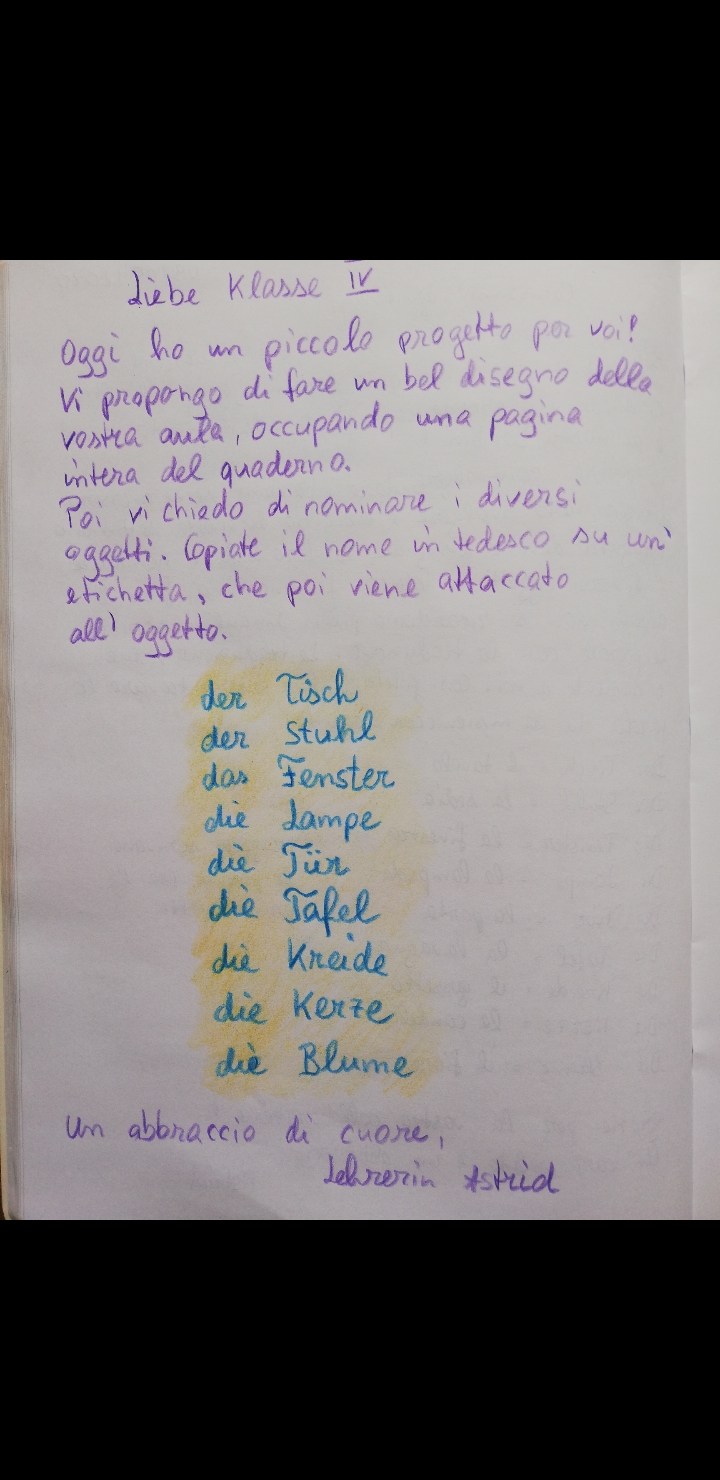 Liebe Klasse IV
Oggi ho un piccolo progetto per voi!
Vi propongo di fare un bel disegno della
vostra aula, occupando una pagina
intera del quaderno.
Poi vi chiedo di nominare i diversi
oggetti. Copiate il nome in tedesco su un'
etichetta, che poi viene attaccato
all'oggetto.
der Tisch
der Stuhl
das Fenster
die Lampe
die Tür
die Tafel
die Kreide
die Kerze
die Blume
Un abbraccio di cuore,
Lehrerin Astrid